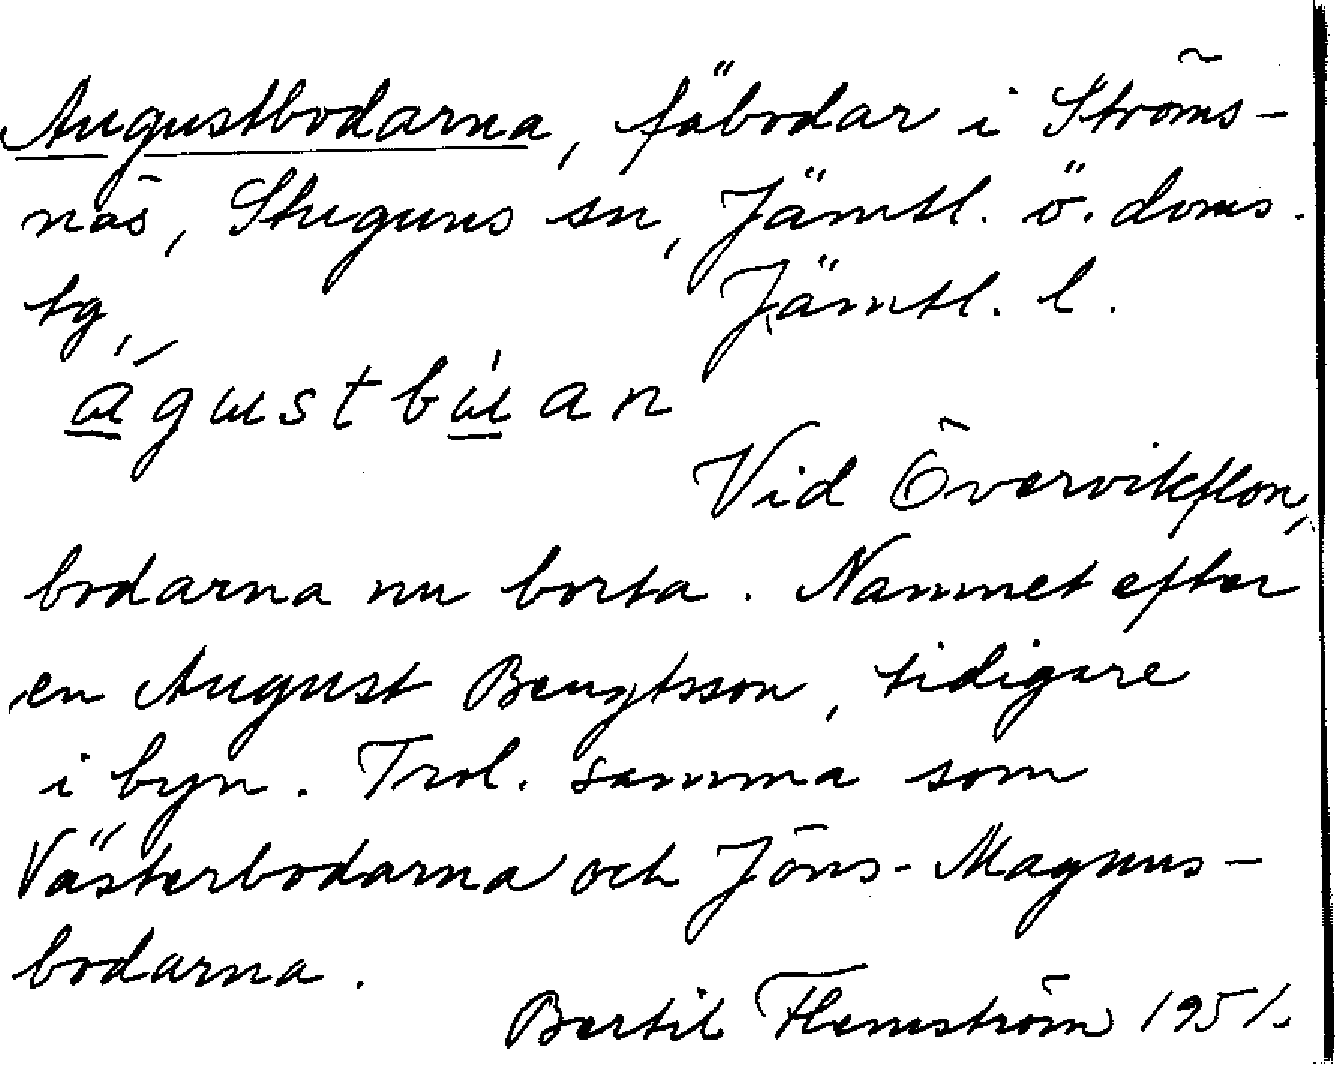 Augustbodarna, fäbodar i Ströms-
näs, Stuguns sn, Jämtl. ö. doms.
tg, Jämtl. l.
águstbu̠̍an
Vid Övervikflon,
bodarna nu borta. Namnet efter
en August Bengtsson, tidigare
i byn. Trol. samma som
Västerbodarna och Jöns-Magnus-
bodarna.
Bertil Flemström 1951.